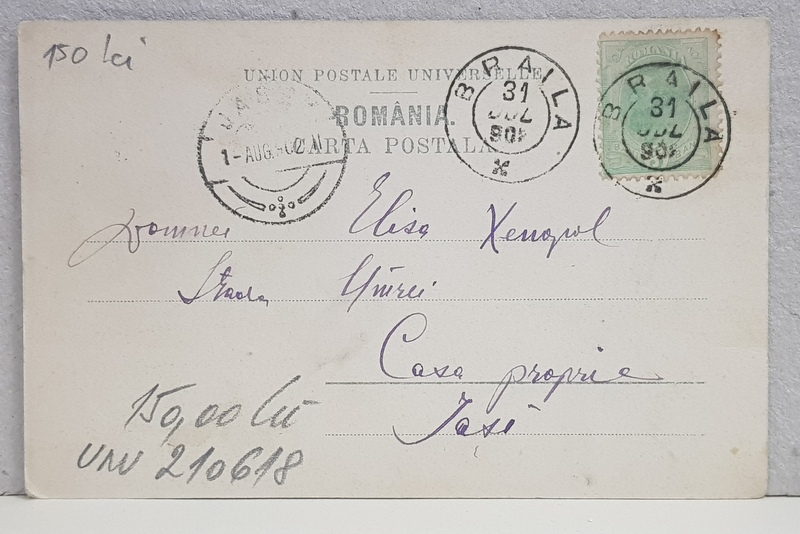 150 lei
UNION POSTALE UNIVERSELLE
ROMÂNIA.
CARTA POSTALA
BRAILA
31
JUL
BRAILA
31
JUL
1-AUG.
Domnei Elisa Xenopol
Strada Unirei
Casa proprie
Iasi
150,00 lei
210618